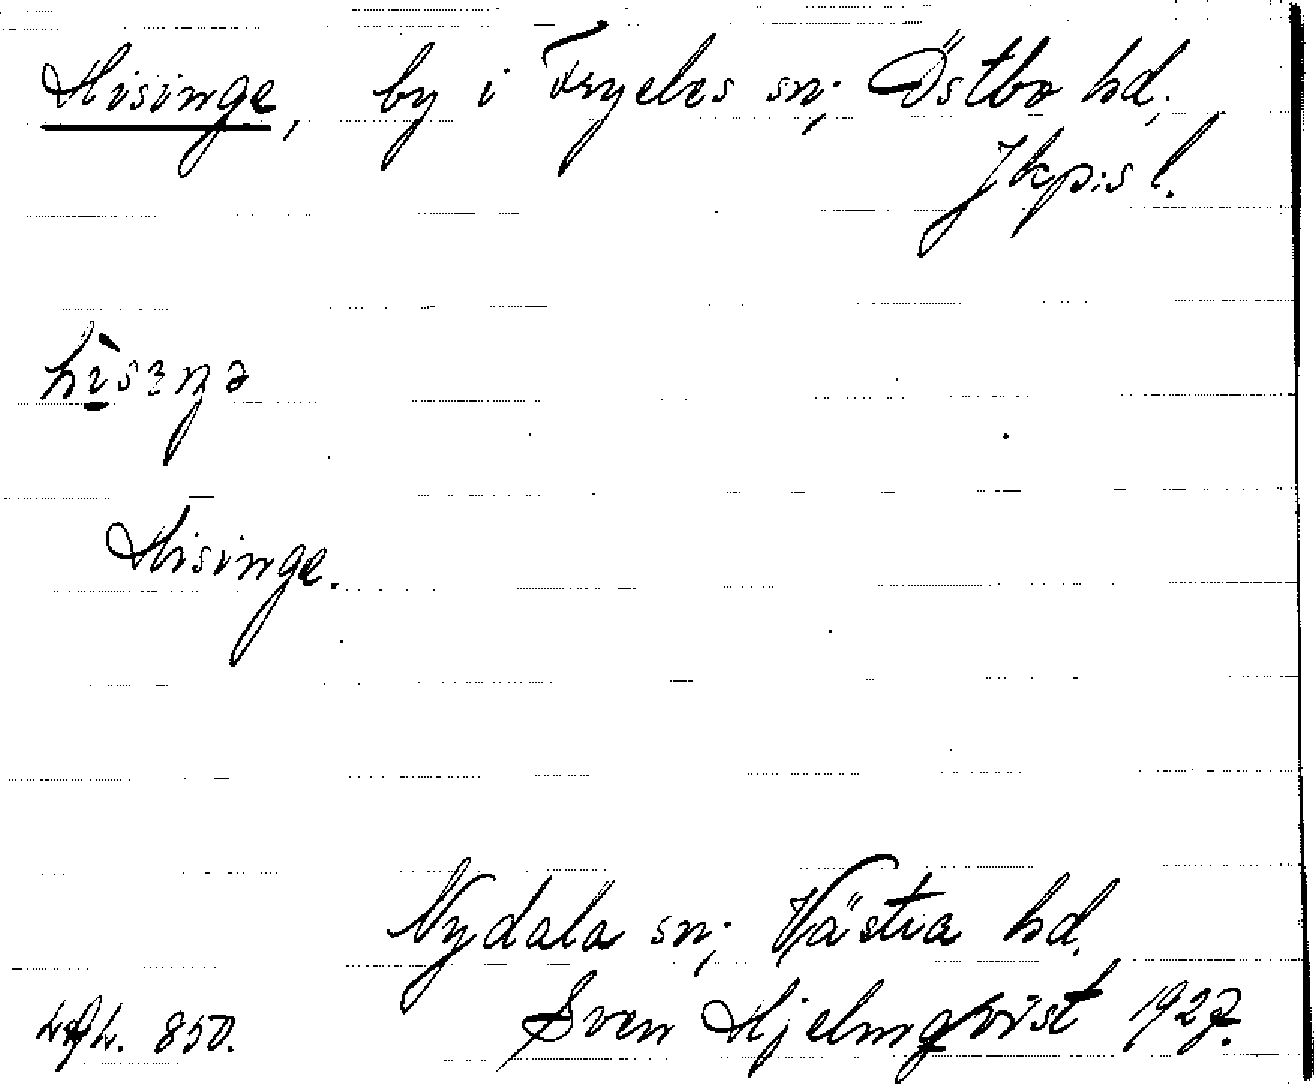 Hisinge, by i Fryeles sn; Östbo hd,
Jkp:s l.
hìsıŋə
Hisinge.
Nydala sn; Västra hd,
Sven Hjelmqvist 1927.
850.